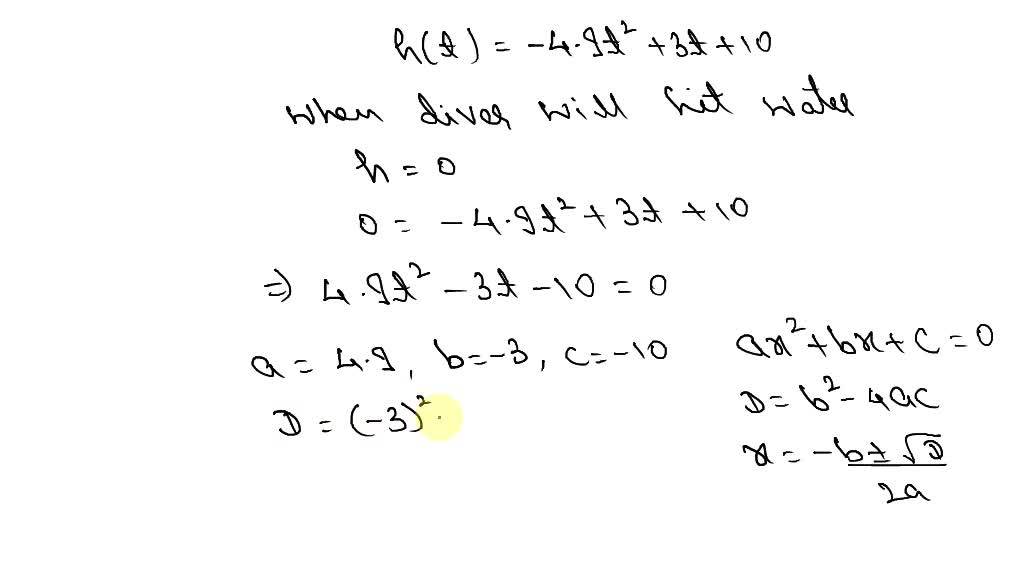 h(t) = -4.9t² + 3t + 10
when diver will hit water
h = 0
0 = -4.9t² + 3t + 10
⇒ 4.9t² - 3t - 10 = 0
a = 4.9, b = -3, c = -10
D = (-3)²
ax² + bx + c = 0
D = b² - 4ac
x = -b ± √D
2a